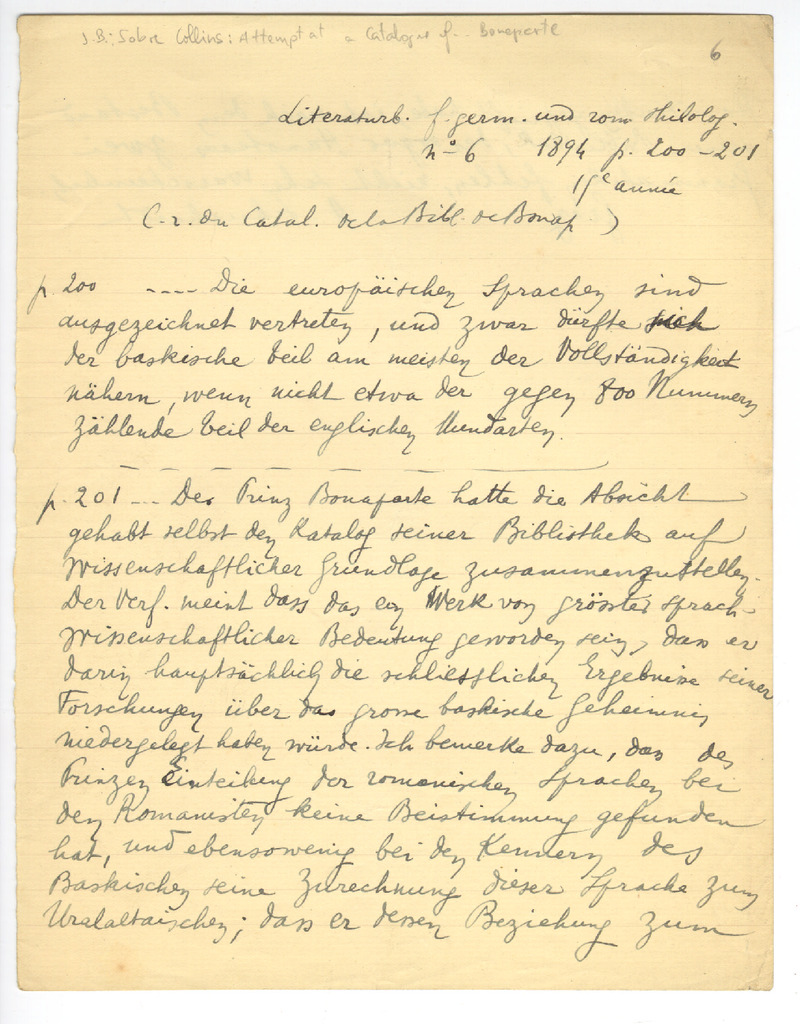 J.B.: Sobre Collins: Attempt at a Catalogue of.. Bonaparte
6
Literaturb. f. germ. und rom Philolog.
nº 6 1894 p. 200-201
15e année
(C-r. du Catal. de la Bibl. de Bonap.)
p. 200 ---- Die europäischen Sprachen sind
ausgezeichnet vertreten, und zwar dürfte
der baskische Teil am meisten der Vollständigkeit
nähern, wenn nicht etwa der gegen 800 Nummern
zählende Teil der englischen Mundarten.
p. 201 --- Der Prinz Bonaparte hatte die Absicht
gehabt selbst den Katalog seiner Bibliothek auf
wissenschaftlicher Grundlage zusammenzustellen.
Der Verf. meint dass das ein Werk von grösster sprach-
wissenschaftlicher Bedeutung geworden sein, dass er
darin hauptsächlich die schliesslichen Ergebnisse seiner
Forschungen über das grosse baskische Geheimnis
niedergelegt haben würde. Ich bemerke dazu, dass des
Prinzen Einteilung der romanischen Sprachen bei
den Romanisten keine Beistimmung gefunden
hat, und ebensowenig bei den Kennern des
Baskischen seine Zurechnung dieser Sprache zum
Uralaltaischen; dass er dessen Beziehung zum